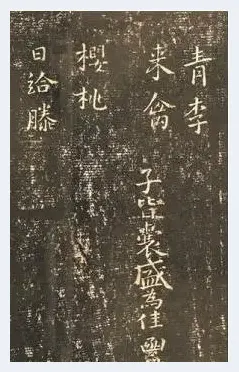 青李
来禽
櫻桃
日給滕
子皆囊盛為佳函